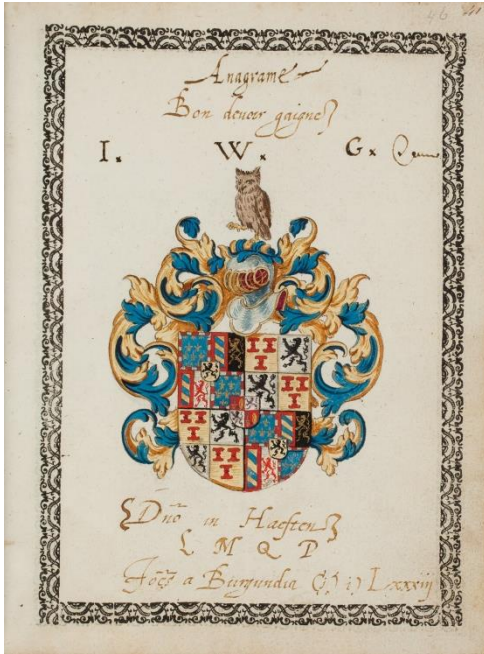 46
Anagrame
Bon denoir gaigne
I. W. G.
Dnō in Haeften
L M Q P
a Burgundia Lxxxiij